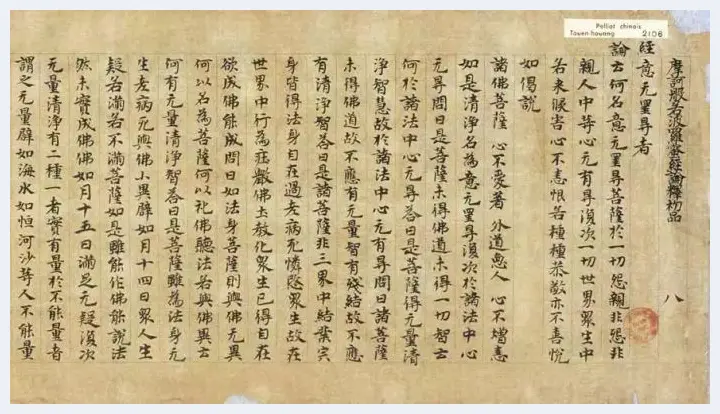 Pelliot chinois
Touen-houang 2106
摩訶般若波羅蜜經論釋初品 八
經意无罣㝵者
論云何名意无罣㝵菩薩於一切怨親非怨非
親人中等心无有㝵復次一切世界衆生中
若来賊害心不恚恨若種種恭敬亦不喜悅
如偈說
諸佛菩薩 心不愛著 外道惡人 心不憎恚
如是清淨名為意无罣㝵復次於諸法中心
无㝵問曰是菩薩未得佛道未得一切智云
何於諸法中心无㝵荅曰是菩薩得无量清
淨智慧故於諸法中心无有㝵問曰諸菩薩
未得佛道故不應有无量智有殘結故不應
有清淨智荅曰是諸菩薩非三界中結業宍
身皆得法身自在過老病死憐愍衆生故在
世界中行為莊嚴佛土教化衆生已得自在
欲成佛能成問曰如法身菩薩則與佛无異
何以名為菩薩何以礼佛聽法若與佛異云
何有无量清淨智荅曰是菩薩雖為法身无
生老病死與佛小異譬如月十四日衆人生
疑若滿若不滿菩薩如是雖能作佛能說法
然未實成佛佛如月十五日滿足无疑復次
无量清淨有二種一者實有量於不能量者
謂之无量譬如海水如恒河沙等人不能量